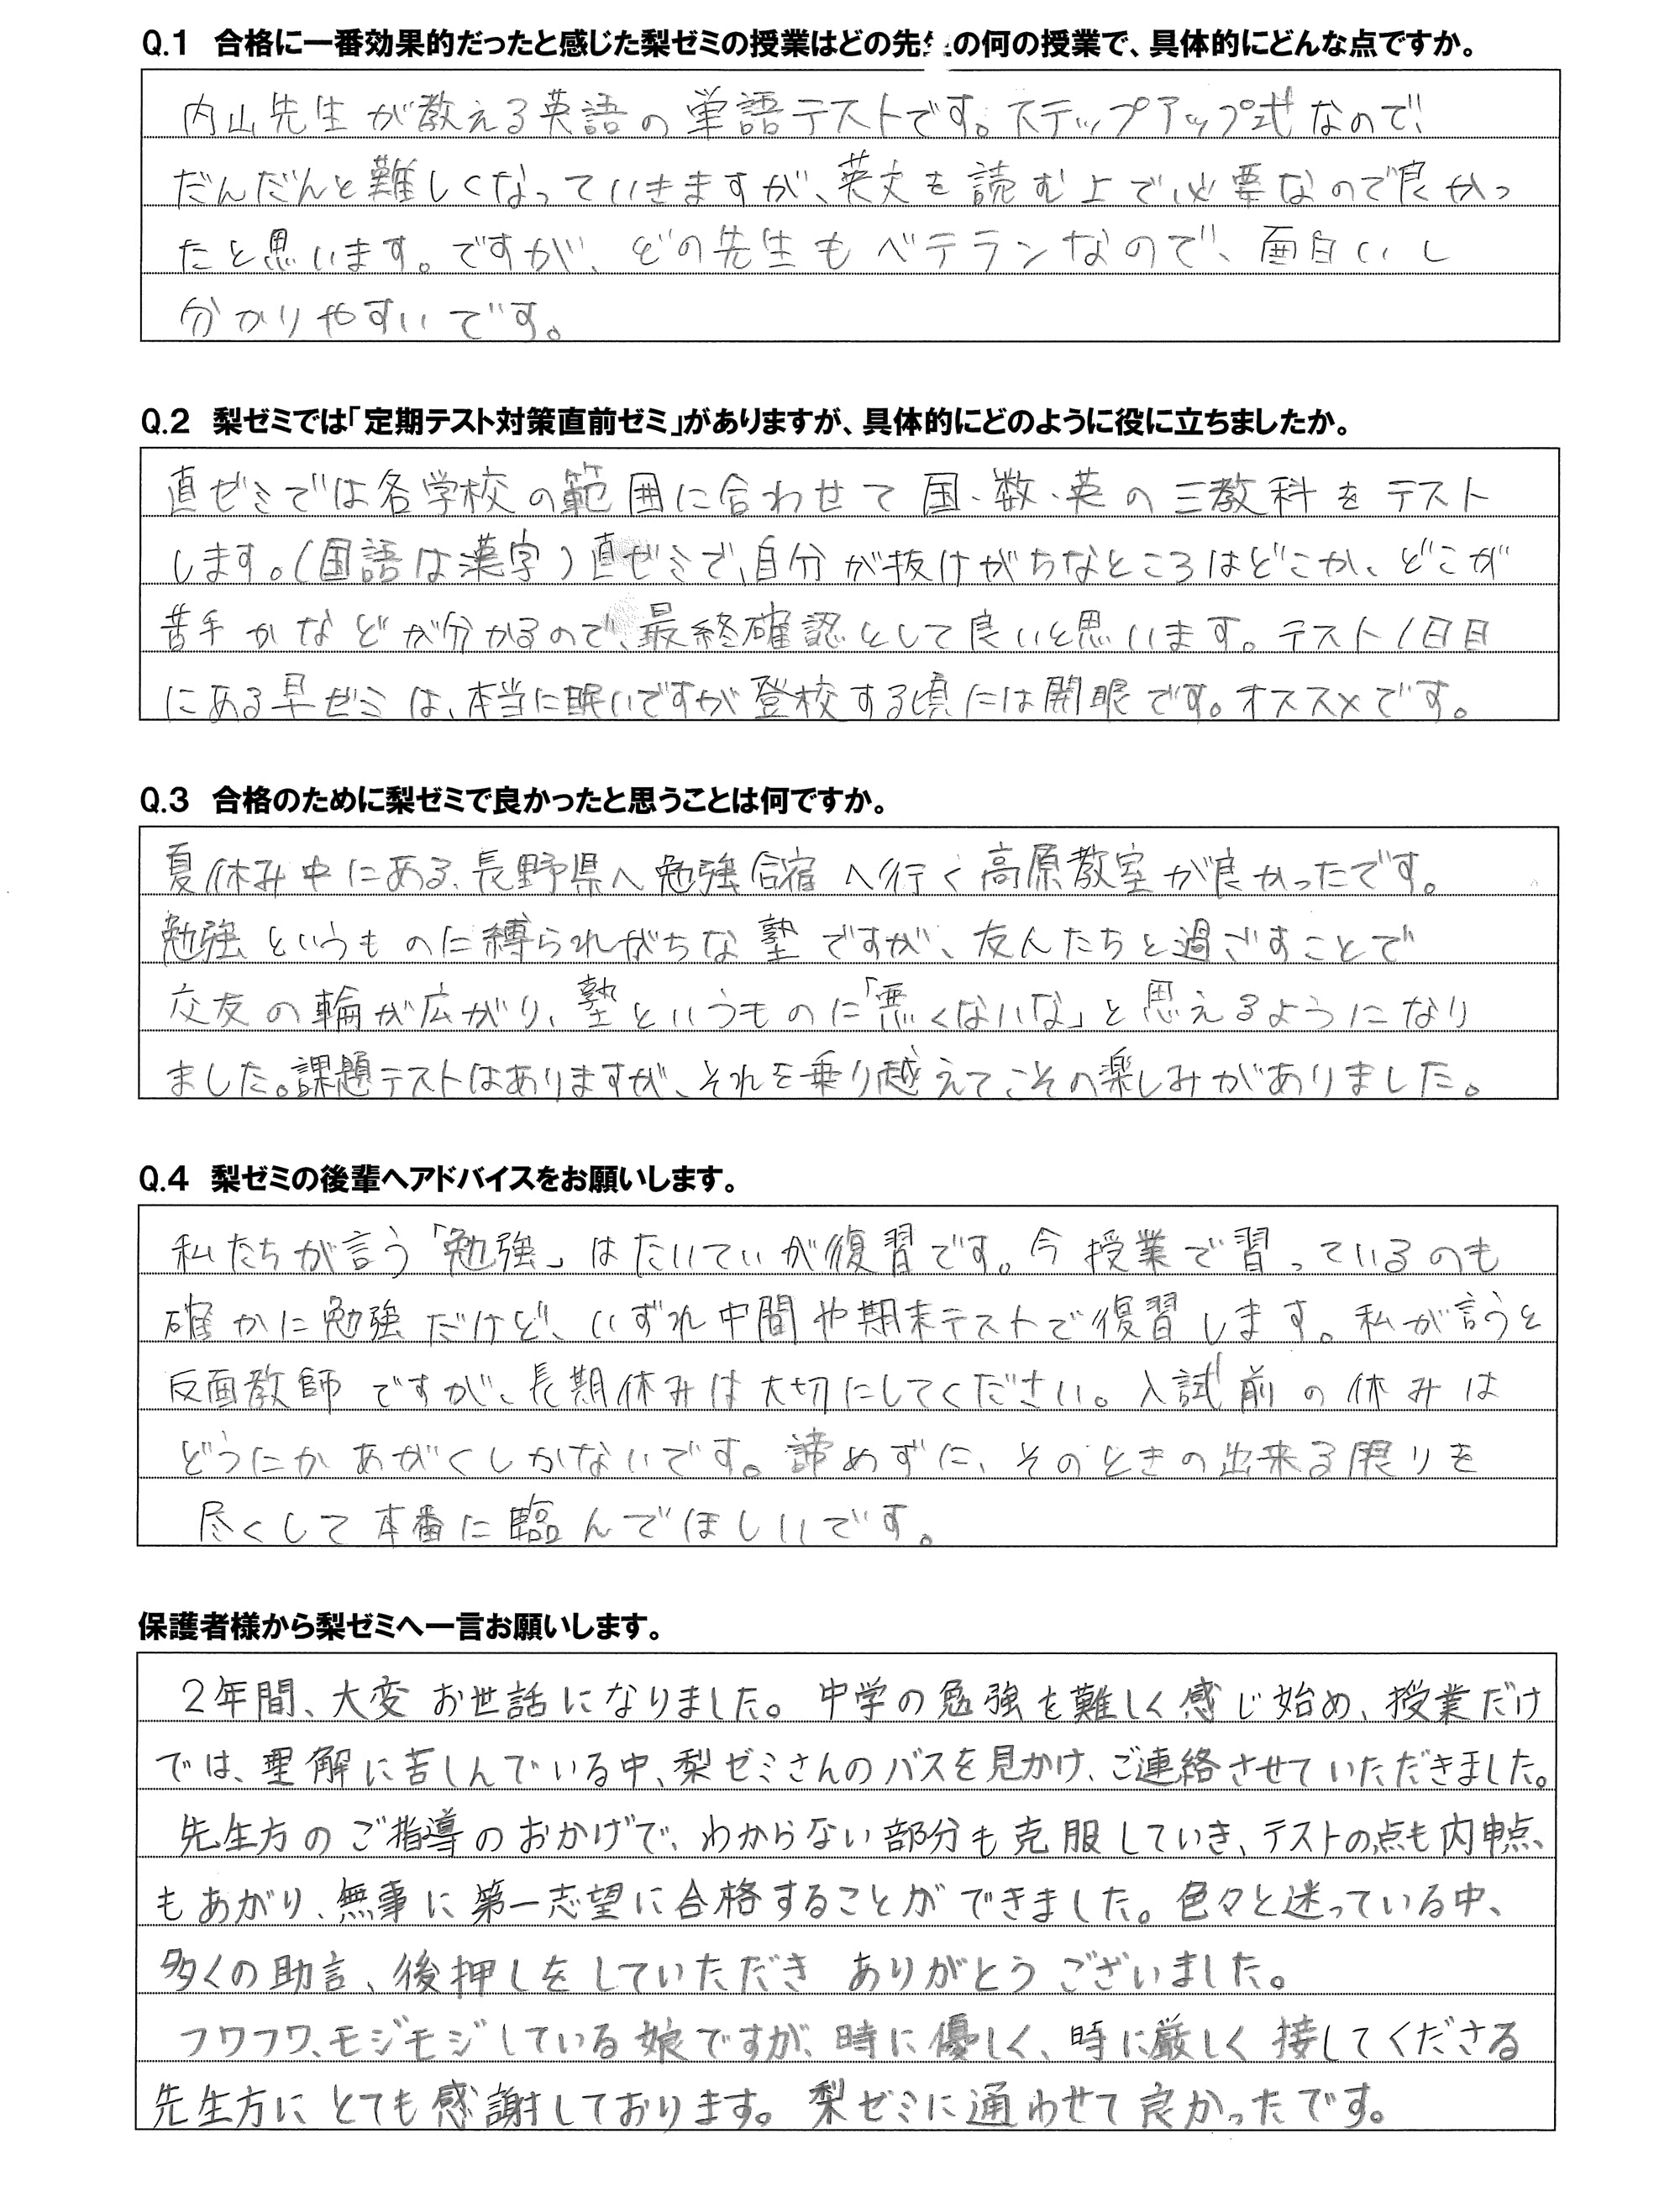 Q.1 合格に一番効果的だったと感じた梨ゼミの授業はどの先生の何の授業で、具体的にどんな点ですか。
内山先生が教える英語の単語テストです。ステップアップ式なので、
だんだんと難しくなっていきますが、英文を読む上で必要なので良かっ
たと思います。ですが、どの先生もベテランなので、面白いし
分かりやすいです。
Q.2 梨ゼミでは「定期テスト対策直前ゼミ」がありますが、具体的にどのように役に立ちましたか。
直ゼミでは各学校の範囲に合わせて国・数・英の三教科をテスト
します。(国語は漢字)直ゼミで、自分が抜けがちなところはどこか、どこが
苦手かなどが分かるので、最終確認として良いと思います。テスト1日目
にある早ゼミは、本当に眠いですが登校する頃には開眼です。オススメです。
Q.3 合格のために梨ゼミで良かったと思うことは何ですか。
夏休み中にある、長野県へ勉強合宿へ行く高原教室が良かったです。
勉強というものに縛られがちな塾ですが、友人たちと過ごすことで
交友の輪が広がり、塾というものに「悪くないな」と思えるようになり
ました。課題テストはありますが、それを乗り越えてこその楽しみがありました。
Q.4 梨ゼミの後輩へアドバイスをお願いします。
私たちが言う「勉強」はたいていが復習です。今授業で習っているのも
確かに勉強だけど、いずれ中間や期末テストで復習します。私が言うと
反面教師ですが、長期休みは大切にしてください。入試前の休みは
どうにかあがくしかないです。諦めずに、そのときの出来る限りを
尽くして本番に臨んでほしいです。
保護者様から梨ゼミへ一言お願いします。
2年間、大変お世話になりました。中学の勉強を難しく感じ始め、授業だけ
では、理解に苦しんでいる中、梨ゼミさんのバスを見かけ、ご連絡させていただきました。
先生方のご指導のおかげで、わからない部分も克服していき、テストの点も内申点、
もあがり、無事に第一志望に合格することができました。色々と迷っている中、
多くの助言、後押しをしていただき ありがとうございました。
フワフワ、モジモジしている娘ですが、時に優しく、時に厳しく接してくださる
先生方にとても感謝しております。梨ゼミに通わせて良かったです。